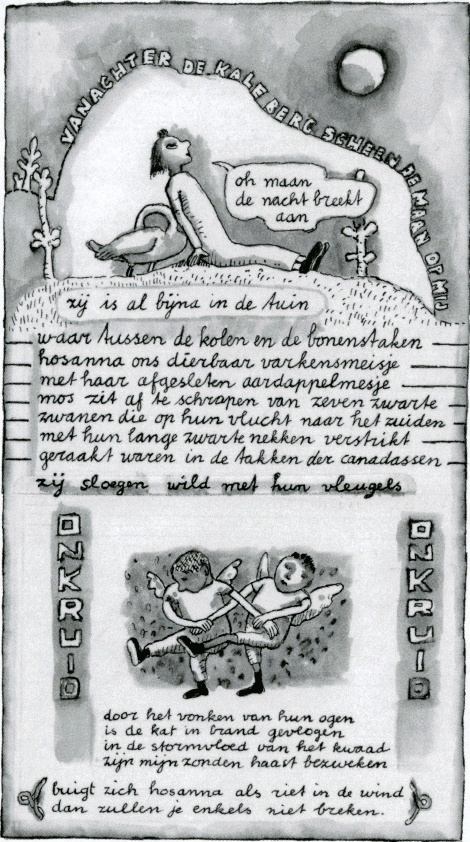 VANACHTER DE KALE BERG SCHEEN DE MAAN OP MIJ
oh maan
de nacht breekt
aan
zij is al bijna in de tuin
waar tussen de kolen en de bonenstaken
hosanna ons dierbaar varkensmeisje
met haar afgesleten aardappelmesje
mos zit af te schrapen van zeven zwarte
zwanen die op hun vlucht naar het zuiden
met hun lange zwarte nekken verstrikt
geraakt waren in de takken der canadassen
zij sloegen wild met hun vleugels
ONKRUID
ONKRUID
door het vonken van hun ogen
is de kat in brand gevlogen
in de stormvloed van het kwaad
zijn mijn zonden haast bezweken
buigt zich hosanna als riet in de wind
dan zullen je enkels niet breken.